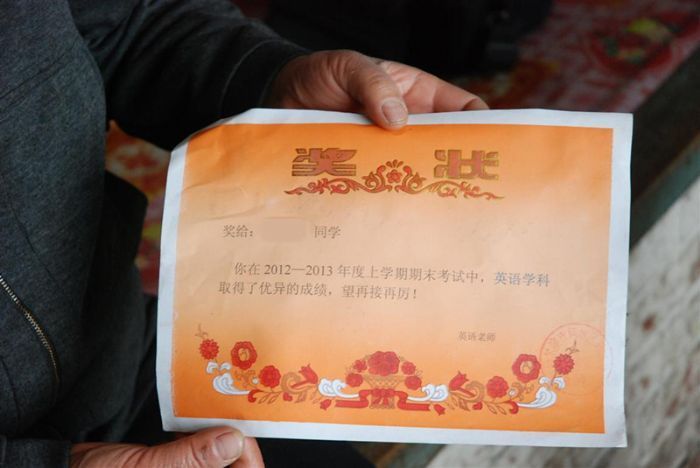 奖 状
奖给： 同学
你在 2012—2013 年度上学期期末考试中，英语学科
取得了优异的成绩，望再接再厉！
英语老师